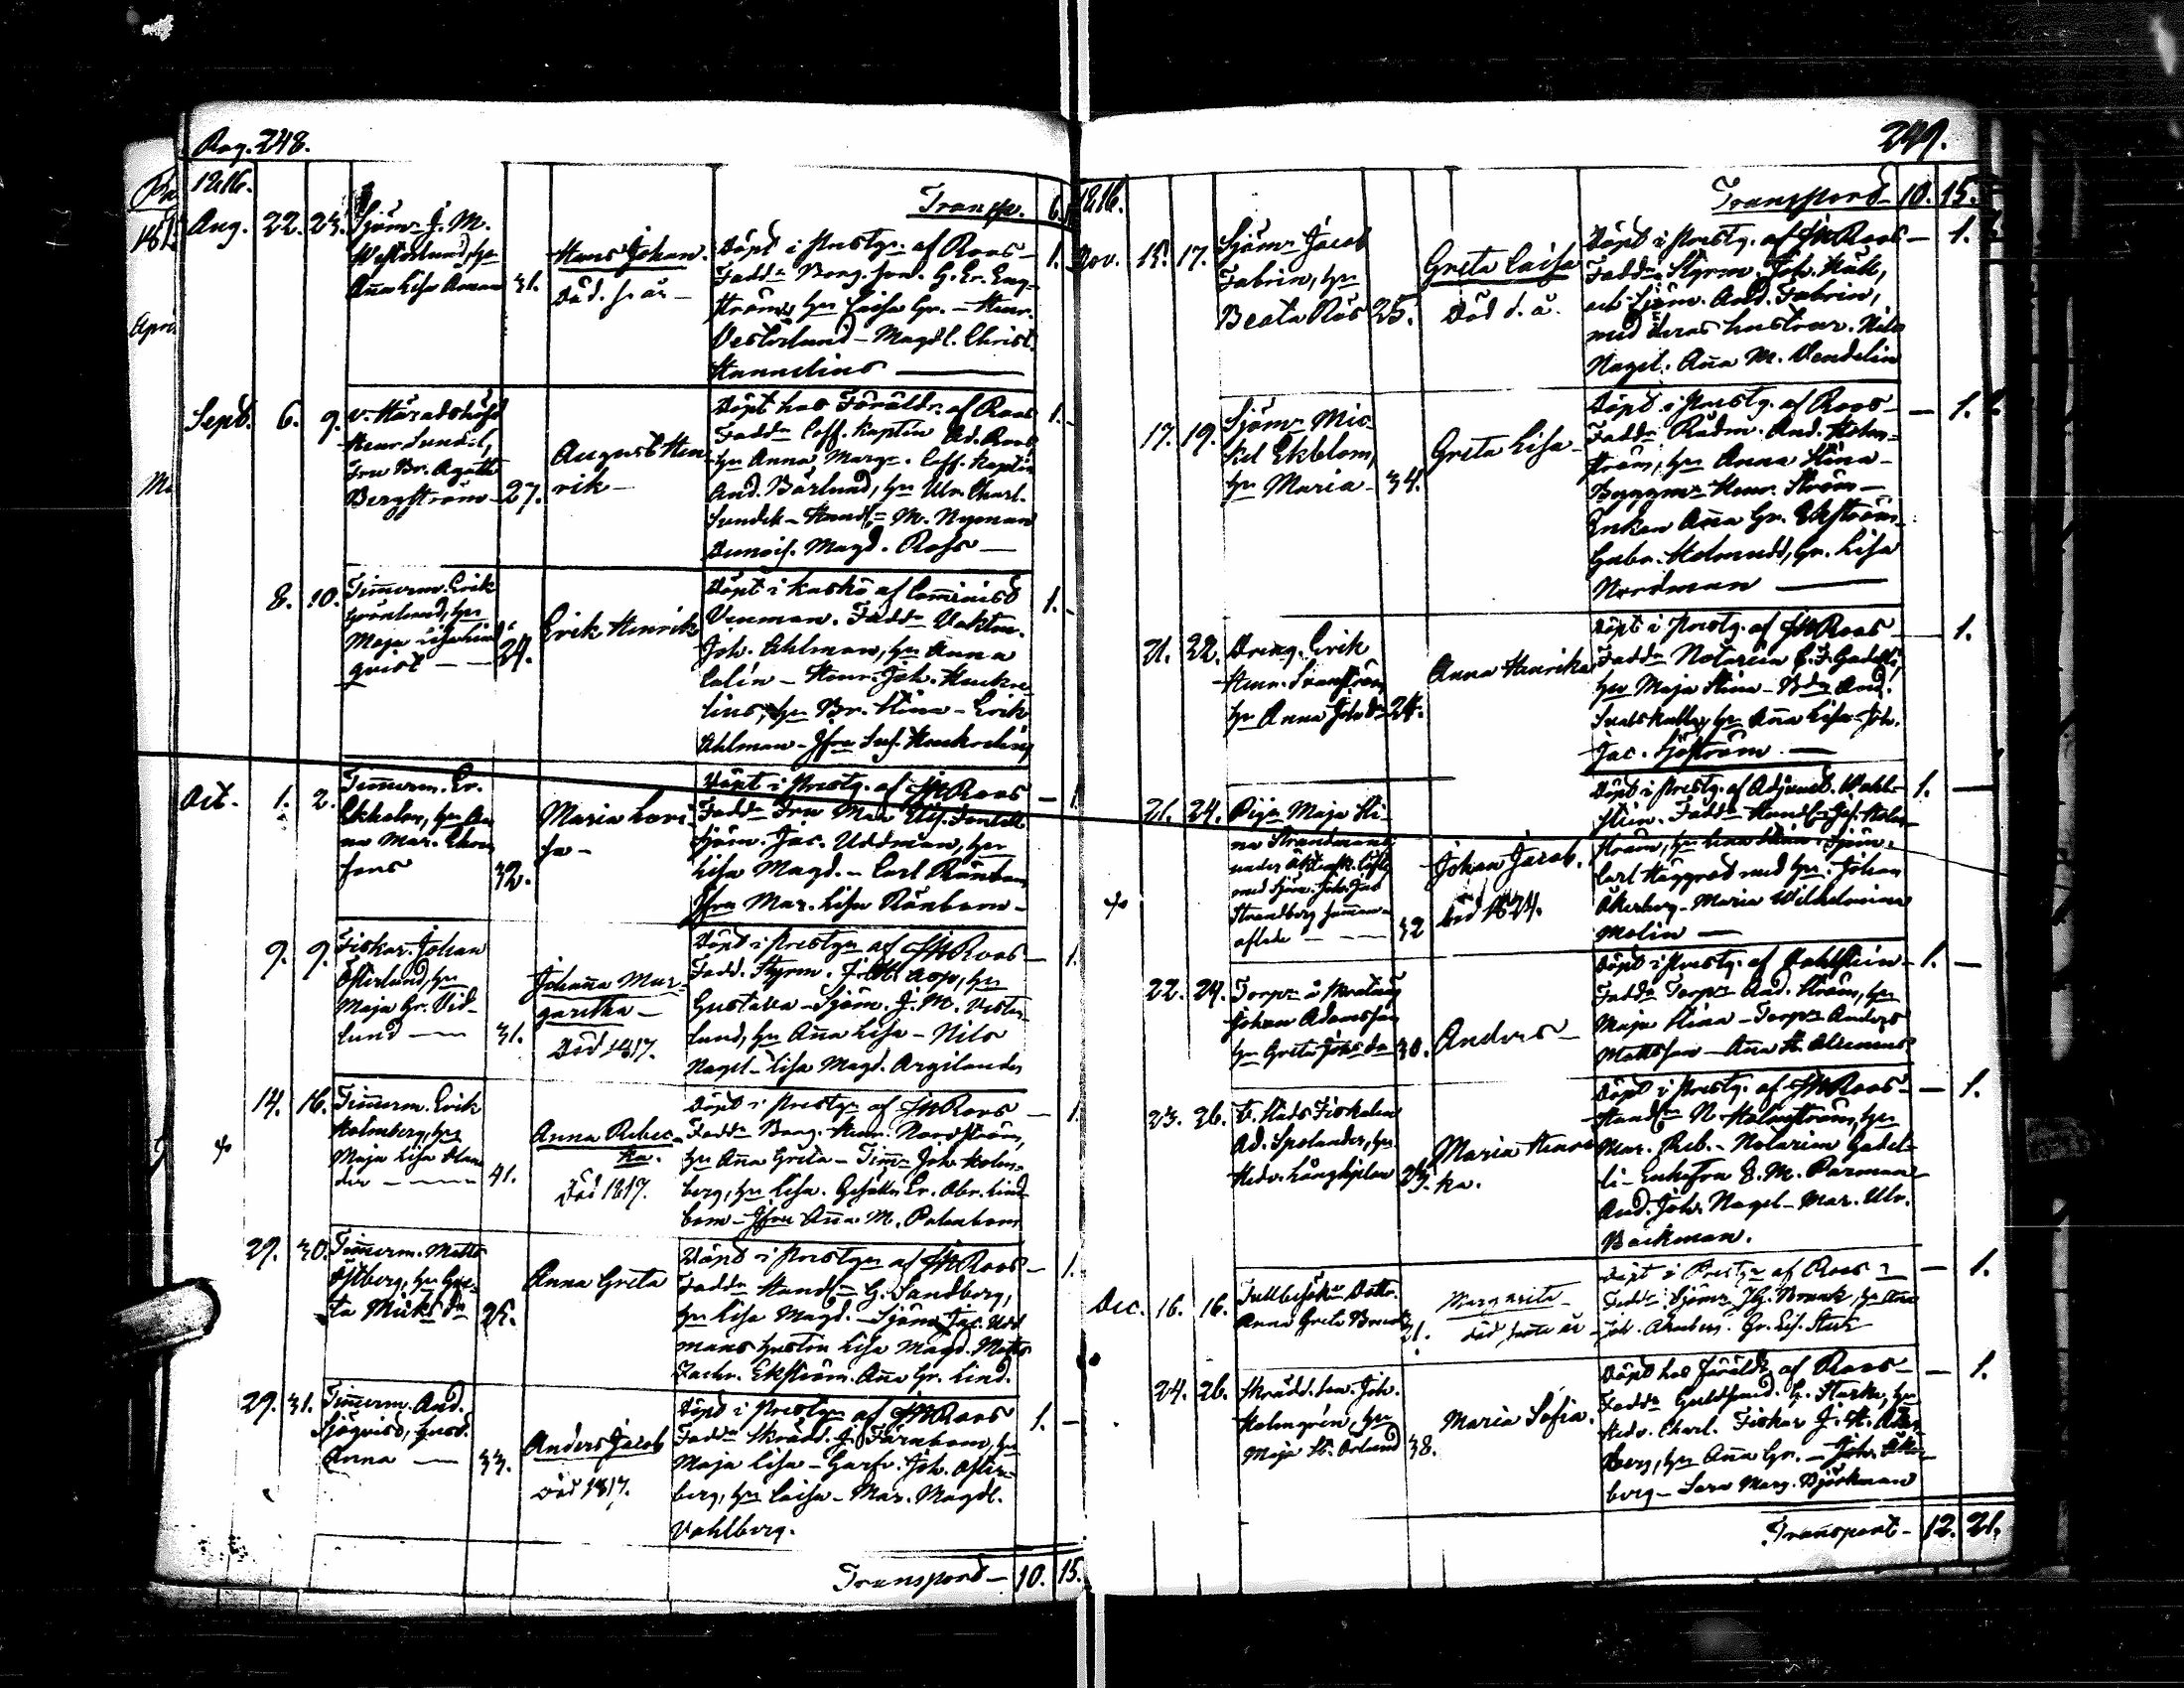 Pag. 248.
1816.
Transp. 6.
Aug. 22. 23. Sjöm. J. M.
Westerlund, hu
Anna Lisa Aman 31.
Hans Johan.
Död. s. år
Döpt i Prestg. af Roos 1.
Fadd. Borg. son. G. Er. Eng-
ström, hu Caisa Gr. - Henr.
Vesterlund - Magdl. Christ.
Hannelius
Sept. 6. 9. v. Häradshöfd
Henr. Sundel,
Fru Br. Agatha
Bergström 27.
August Hen
rik
Döpt hos Föräldr. af Roos 1.
Fadd. Coff. Kaptin Ad. Roos
hu Anna Marg. Coff. Kaptin
And. Bärlund, hu Ulr. Charl.
Sundel - Handl. M. Nyman
Demois. Magd. Roos
8. 10. Timerm. Erik
Grönlund, hu
Maja Lisa Lind
qvist 24.
Erik Henrik
Döpt i Kaskö af Cominist 1.
Venman. Fadd. Vaktm.
Joh. Ahlman, hu Anna
Calin - Henr. Joh.
hu Br. Stina - Erik
Ahlman - Jfru
Oct. 1. 2. Timerm. Er.
Ekholm, hu An
na Mar. 32.
Maria Lovi
sa
Döpt i Prestg. af Roos 1.
Fadd. Fru Mar. Elis.
Sjöm. Jac. Uddman, hu
Lisa Magd. - Carl Rönbom
Jfru Mar. Lisa Rönbom
9. 9. Fiskar. Johan
Österlund, hu
Maja Gr. Vid-
lund 31.
Johana Mar-
garetha
Död 1817.
Döpt i Prestg. af Roos 1.
Fadd. Styrm. Asp, hu
Gustava - Sjöm. J. M. Vester-
lund, hu Ana Lisa - Nils
Nagel - Lisa Magd. Argilander
14. 16. Timerm. Erik
Holmberg, hu
Maja Lisa
41.
Anna Rebec
ka.
Död 1817.
Döpt i Prestg. af Roos 1.
Fadd. Borg. Henr. Nordström,
hu Ana Greta - Tim. Joh. Holm-
berg, hu Lisa. Gesäll. Er. Abr. Lind-
bom - Jfru Ana M. Palmbom
29. 30. Timerm. Matts
Östberg, hu Gre-
ta Mick. d. 25.
Anna Greta
Döpt i Prestg. af Roos 1.
Fadd. Handl. G. Sandberg,
hu Lisa Magd. - Sjöm. Jac. Udd
mans hustru Lisa Magd. Matts
Zachr. Ekström. Ana Gr. Lind.
29. 31. Timerm. And.
Sjöqvist, hust.
Anna 33.
Anders Jacob
Död 1817.
Döpt i Prestg. af Roos 1.
Fadd. Skrädd. J. Färnbom, hu
Maja Lisa - Garfv. Joh. Öster-
berg, hu Caisa - Mar. Magdl.
Vahlberg.
Transport 10. 15.
249.
1816.
Transport 10. 15.
Nov. 15. 17. Sjöm. Jacob
Fabrin, hu
Beata Ros 25.
Greta Caisa
Död s. å.
Döpt i Prestg. af Roos 1.
Fadd. Styrm. Joh.
och Sjöm. And. Fabrin,
med deras hustrur. Nils
Nagel. Ana M. Vendelin
17. 19. Sjöm. Mic-
kel Ekblom,
hu Maria 34.
Greta Lisa
Döpt i Prestg. af Roos 1.
Fadd. Rådm. And. Holm-
ström, hu Anna Stina
Byggm. Henr. Ström
Enkan Ana Gr. Ekström
Gabr. Gr. Lisa
Nordman
21. 22. Dreng. Erik
Henr.
hu Anna Joh. d. 24.
Anna Henrika
Döpt i Prestg. af Roos 1.
Fadd. Notarien Gadelli
hu Maja Stina - And.
hu Ana Lisa - Joh.
Jac. Sjöström
21. 24. Pig. Maja Sti-
na Strandman,
med Sjöm. Joh. Jac
Strandberg samman-
aflade 32
Johan Jacob.
Död 1824.
Döpt i Prestg. af Adjunct. Wahl- 1.
stein. Fadd. Handl. Jos. Holm-
ström, hu Sjöm.
Carl Häggrod med hu. Johan
Åkerberg - Maria Wilhelmina
Molin
22. 24. Torp. å
Johan Adamsson
hu Greta Johs. d. 30.
Anders
Döpt i Prestg. af Vahlstein 1.
Fadd. Torp. And. Ström, hu
Maja Stina - Torp. Anders
Mattsson - Ana
23. 26. Fiskalen
Ad. Spolander, hu
Hedv. Långhjelm 29.
Maria Henri
ka.
Döpt i Prestg. af Roos 1.
Handl. N. Holmström, hu
Mar. Reb. - Notarien Gadel-
li - Enkefru E. M. Parman
And. Joh. Nagel - Mar. Ulr.
Backman.
Dec. 16. 16. Tullbesökr. Dottr.
Anna Greta
21.
Margareta
död
Döpt i Prestg. af Roos 1.
Fadd. Sjöm. hu
Joh. Akerberg. Gr. Lis.
24. 26. Skrädd. Joh.
Holmgrén, hu
Maja St. Örlund 38.
Maria Sofia.
Döpt hos Föräldr. af Roos 1.
Fadd. Guldsmed. G. Stark, hu
Hedv. Charl. Fiskar J. H. Åker-
berg, hu Ana Gr. - Joh. Åker-
berg - Sara Marg. Björkman
Transport 12. 21.